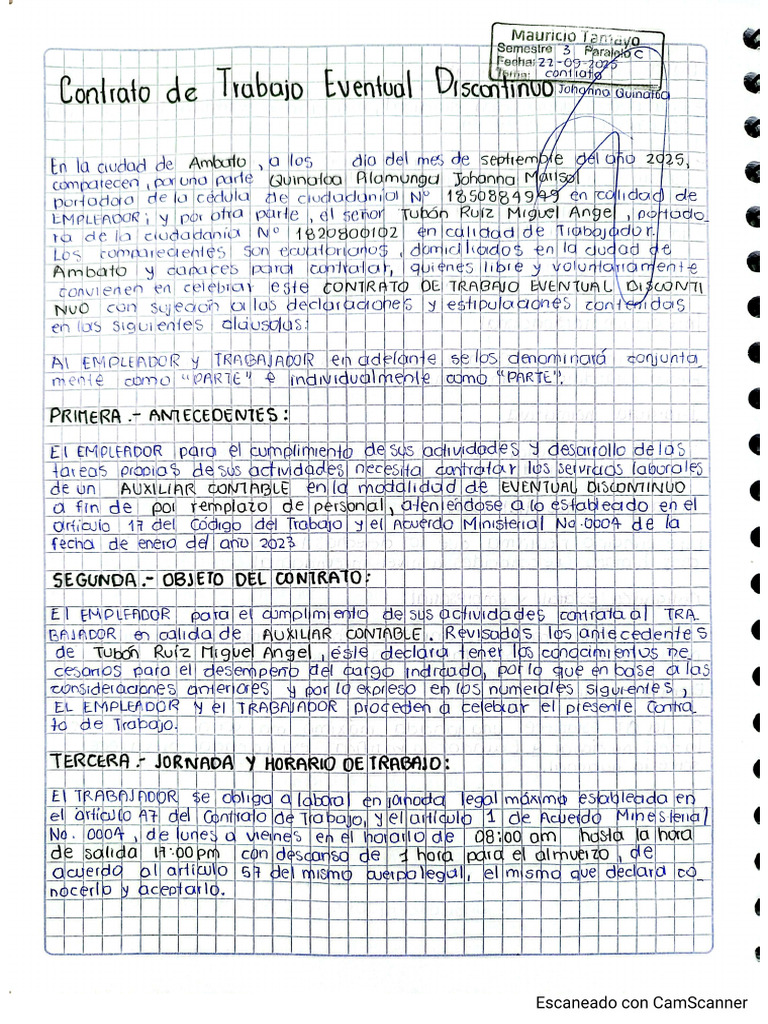 Mauricio Tamayo
Semestre 3 Paralelo C
Fecha: 22-09-2025
Tema: contrato
Contrato de Trabajo Eventual Discontinuo Johanna Quinaloa
En la ciudad de Ambato, a los día del mes de septiembre del año 2025,
comparecen, por una parte Quinaloa Alamunga Johanna Marisol
portadora de la cédula de ciudadanial N° 1850884949 en calidad de
EMPLEADOR; y por otra parte, el señor Tubón Ruiz Miguel Angel, portado
ra de la ciudadanía N° 1820800102 en calidad de Trabajador.
Los comparecientes son ecuatorianos, domiciliados en la ciudad de
Ambato y capaces para contratar, quienes libre y voluntariamente
convienen en celebrar este CONTRATO DE TRABAJO EVENTUAL DISCONTI
NUO con sujeción a las declaraciones y estipulaciones contenidas
en las siguientes cláusulas:
Al EMPLEADOR y TRABAJADOR en adelante se los denominará conjunta
mente como "PARTE" e individualmente como "PARTE".
PRIMERA.- ANTECEDENTES:
El EMPLEADOR para el cumplimiento de sus actividades y desarrollo de las
tareas propias de sus actividades necesita contratar los servicios laborales
de un AUXILIAR CONTABLE en la modalidad de EVENTUAL DISCONTINUO
a fin de por remplazo de personal, ateniéndose a lo estableado en el
artículo 17 del Código del Trabajo y el Acuerdo Ministerial No.0004 de la
fecha de enero del año 2023
SEGUNDA.- OBJETO DEL CONTRATO:
El EMPLEADOR para el cumplimiento de sus actividades contrata al TRA
BAJADOR en calida de AUXILIAR CONTABLE. Revisados los antecedentes
de Tubón Ruíz Miguel Angel, éste declara tener los conocimientos ne
cesarios para el desempeño del cargo indicado, por lo que en base a las
consideraciones anteriores y por lo expreso en los numerales siguientes,
EL EMPLEADOR y el TRABAJADOR proceden a celebrar el presente Contra
to de Trabajo.
TERCERA.- JORNADA Y HORARIO DE TRABAJO:
El TRABAJADOR se obliga a laboral en janoda legal máxima estableada en
el artículo 47 del Contrato de Trabajo, y el artículo 1 de Acuerdo Minesterial
No. 0004, de lunes a viernes en el horario de 08:00 am hasta la hora
de salida 17:00 pm con descanso de 1 hora para el almuerzo, de
acuerdo al artículo 57 del mismo cuerpo legal, el mismo que declara co_
nocerlo y aceptarlo.
Escaneado con CamScanner